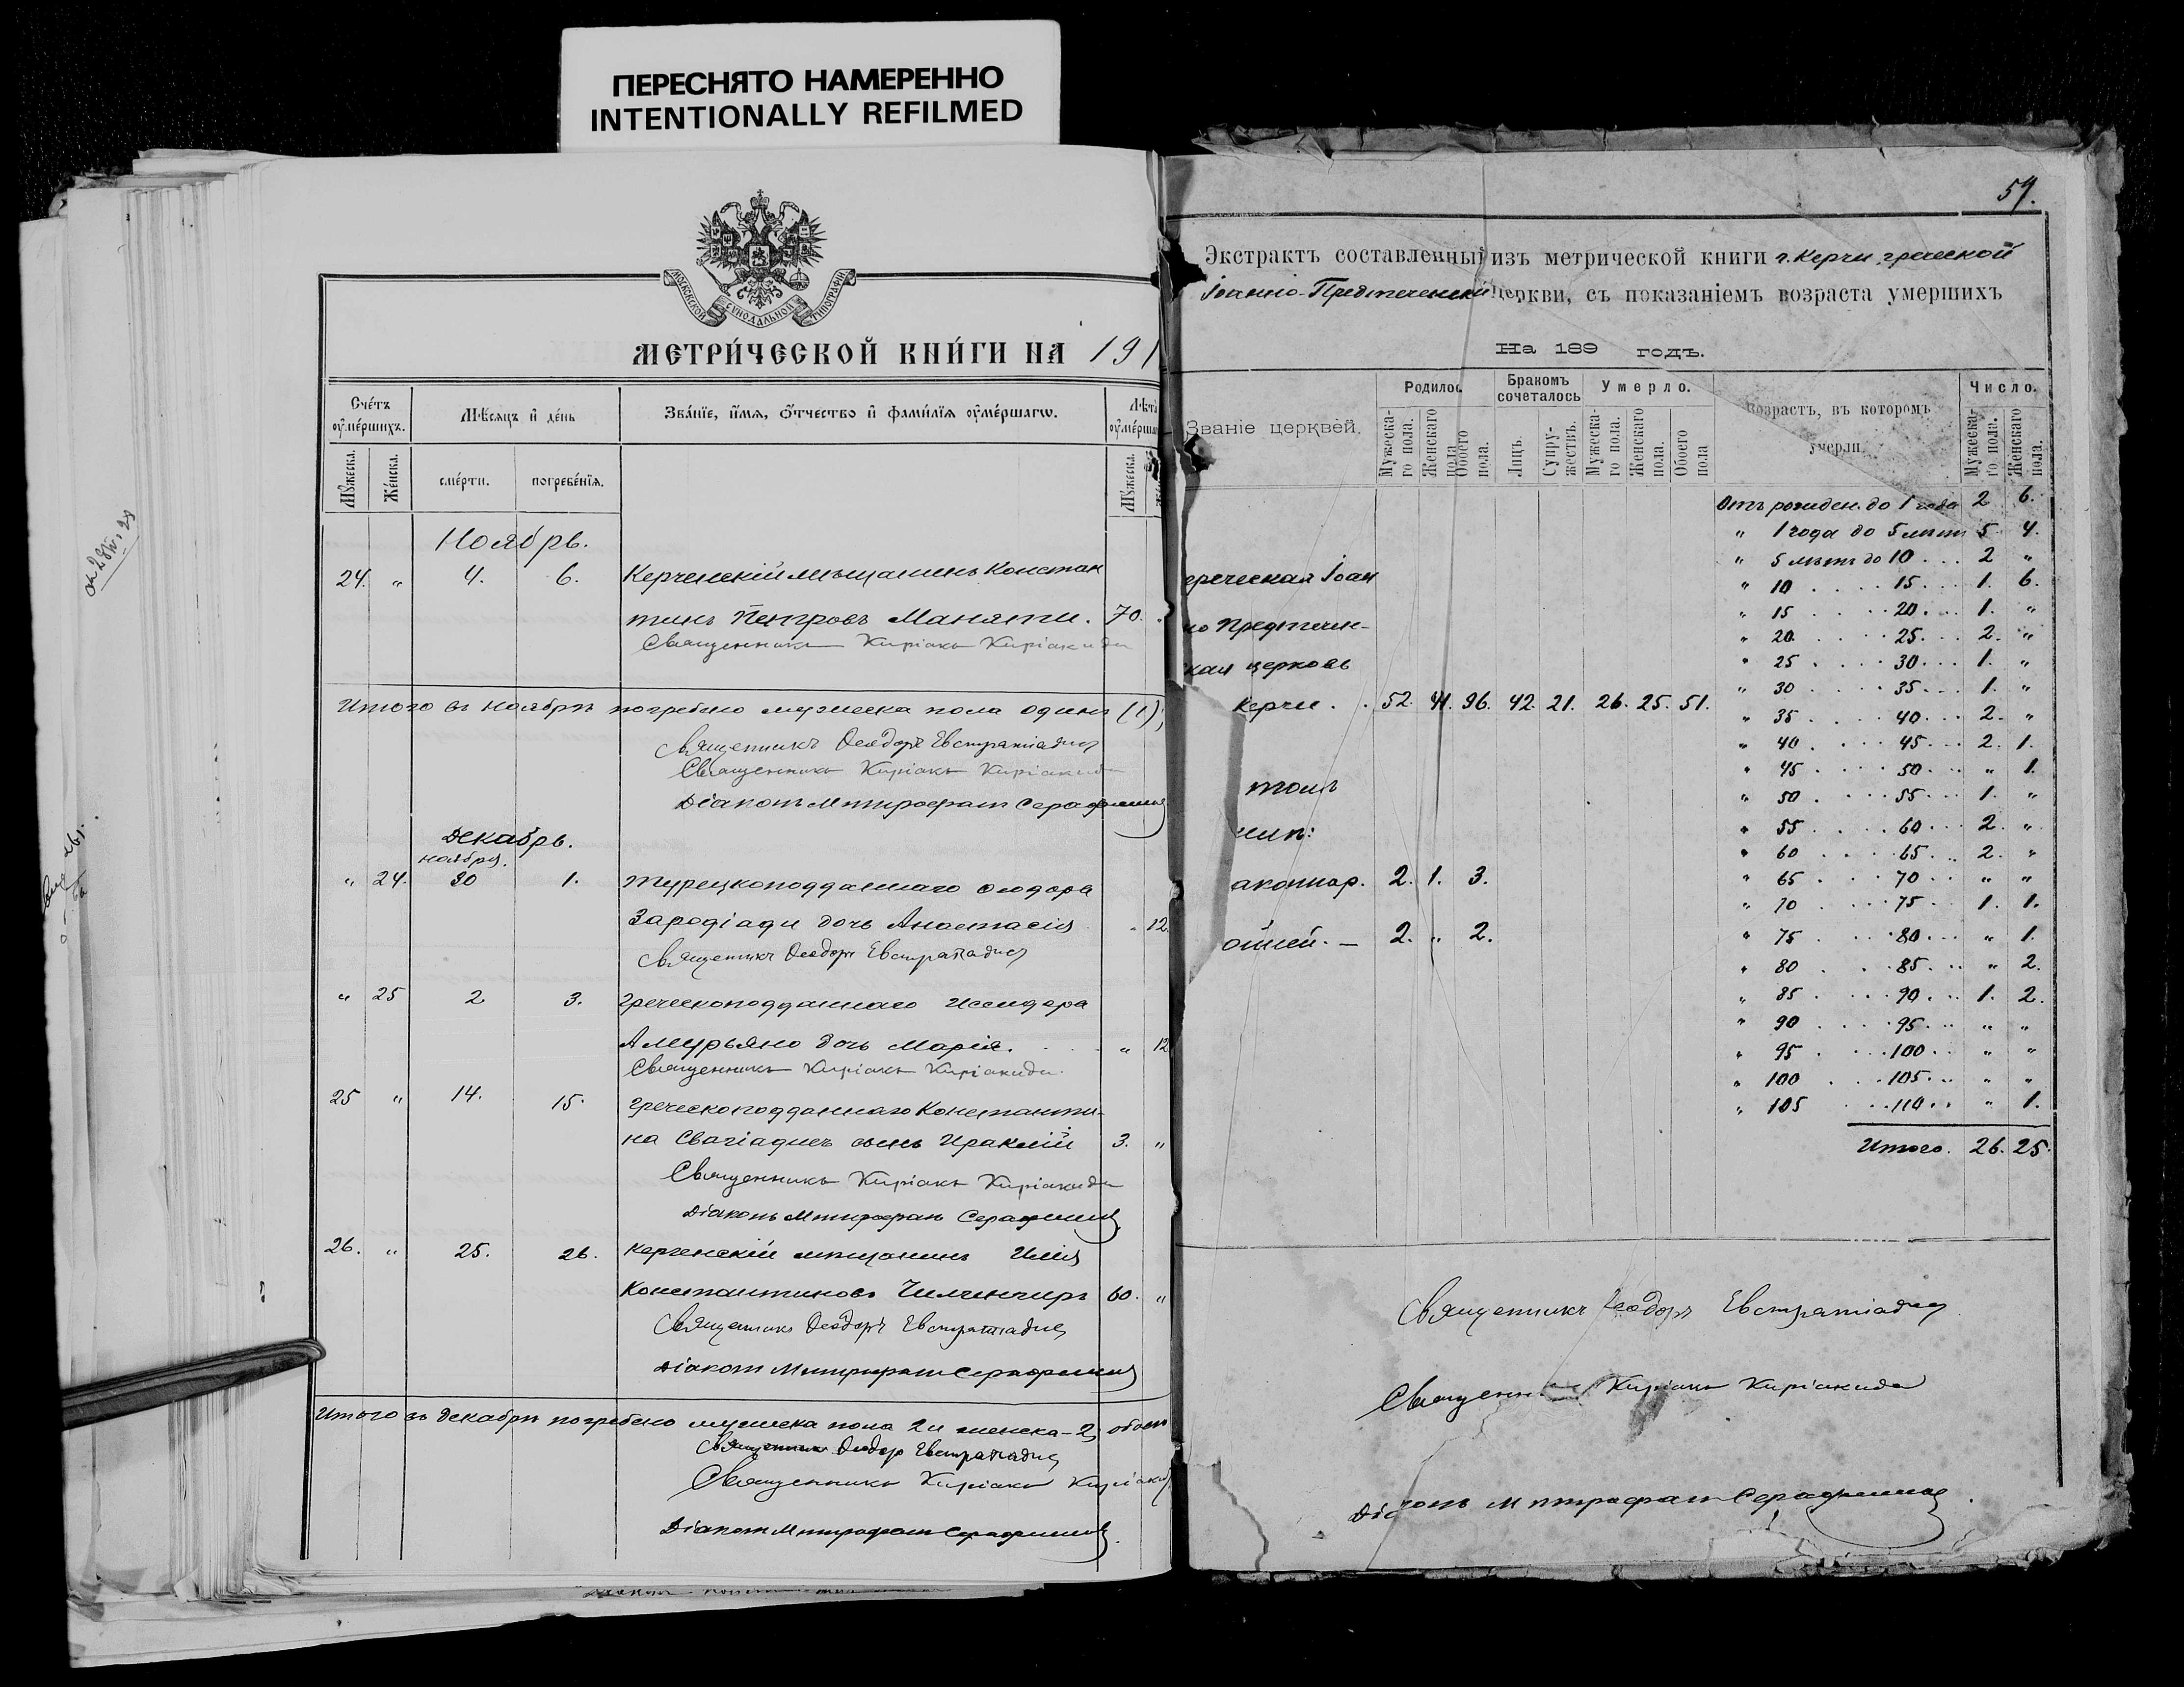 ПЕРЕСНЯТО НАМЕРЕННО
INTENTIONALLY REFILMED
МОСКОВСКОЙ СѴНОДАЛЬНОЙ ТИПОГРАФІИ
МЕТРИ́ЧЕСКОЙ КНИ́ГИ НА 191
Сче́тъ оу҆ме́ршихъ.
Мѣ́сяцъ и҆ де́нь
Зва́нїе, и҆́мя, ѻ҆́тчество и҆ фами́лїя оу҆ме́ршагѡ.
Лѣ́та оу҆ме́рша
Мꙋ́жеска.
Же́нска.
сме́рти.
погребе́нїя.
Мꙋ́жеска.
Ноябрь.
24. " 4. 6. Керченскій мѣщанинъ Констан
тинъ Петровъ Маняти. 70.
Священникъ Киріакъ Киріакиди
Итого въ ноябрѣ погребено мужеска пола одинъ (1);
Священникъ Ѳеодоръ Евстратіадис
Священникъ Киріакъ Киріакиди
Діаконъ Митрофанъ Серафимов
Декабрь.
ноября.
" 24. 30 1. Турецкоподданнаго Ѳеодора
Зародіади дочь Анастасія " 12.
Священникъ Ѳеодоръ Евстратіадис
" 25 2 3. Греческоподданнаго Исидора
Амурьяно дочь Марія. " 12
Священникъ Киріакъ Киріакиди.
25 " 14. 15. Греческоподданнаго Константи-
на Свагіадисъ сынъ Ираклій 3. "
Священникъ Киріакъ Киріакиди
Діаконъ Митрофанъ Серафимов
26. " 25. 26. Керченскій мѣщанинъ Илія
Константиновъ Чилингиръ 60. "
Священникъ Ѳеодоръ Евстратіадис
Діаконъ Митрофанъ Серафимов
Итого въ декабрѣ погребено мужеска пола 2 и женска - 2; обоего
Священникъ Ѳеодоръ Евстратіадис
Священникъ Киріакъ Киріакид
Діаконъ Митрофанъ Серафимов.
59.
Экстрактъ составленный изъ метрической книги г. Керчи греческой
Іоанно-Предтеченской церкви, съ показаніемъ возраста умершихъ
На 189 годъ.
Званіе церквей.
Родилос
Бракомъ сочеталось
Умерло.
Возрастъ, въ которомъ умерли.
Число.
Мужеска-го пола.
Женскаго пола
Обоего пола.
Лицъ.
Супру-жествъ.
Мужеска-го пола.
Женскаго пола.
Обоего пола
Мужеска-го пола.
Женскаго пола.
греческая Іоан
но Предтечен-
кая церковь
Керчи. . 52. 44. 96. 42. 21. 26. 25. 51.
томъ
чилѣ:
аконнор. 2. 1. 3.
ойней. — 2. " 2.
Отъ рожден. до 1 года 2 6.
" 1 года до 5 лѣтъ 5 4.
" 5 лѣтъ до 10 . . . 2 "
" 10 . . . . 15 . . . 1. 6.
" 15 . . . . 20 . . . 1. "
" 20 . . . . 25 . . . 2. "
" 25 . . . . 30 . . . 1. "
" 30 . . . . 35 . . . 1. "
" 35 . . . . 40 . . . 2. "
" 40 . . . . 45 . . . 2. 1.
" 45 . . . . 50 . . . " 1.
" 50 . . . . 55 . . . 1. "
" 55 . . . . 60 . . . 2. "
" 60 . . . . 65 . . . 2. "
" 65 . . . . 70 . . . " "
" 70 . . . . 75 . . . 1. 1.
" 75 . . . . 80 . . . " 1.
" 80 . . . . 85 . . . " 2.
" 85 . . . . 90 . . . 1. 2.
" 90 . . . . 95 . . . " "
" 95 . . . . 100 . . . " "
" 100 . . . 105 . . . " "
" 105 . . . 110 . . . " 1.
Итого. 26. 25.
Священникъ Ѳеодоръ Евстратіадис
Священникъ Киріакъ Киріакиди
Діаконъ Митрофанъ Серафимов.